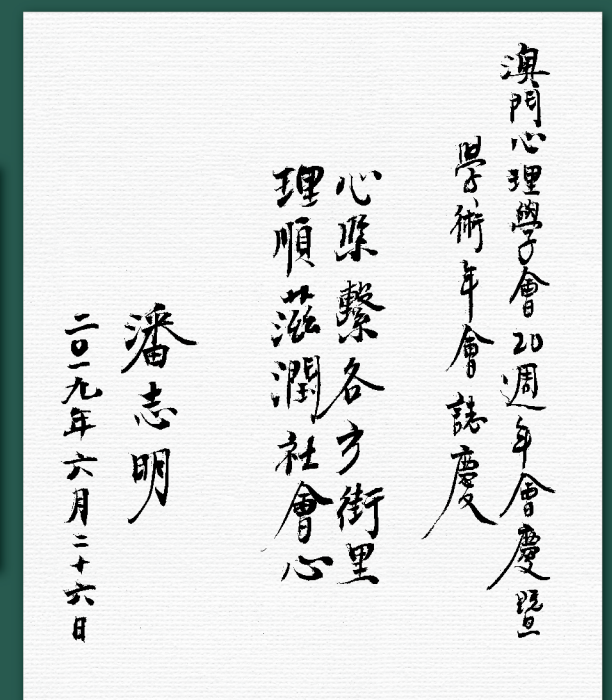 澳門心理學會20週年會慶暨
學術年會誌慶
心聚繫各方街里
理順滋潤社會心
潘志明
二〇一九年六月二十六日